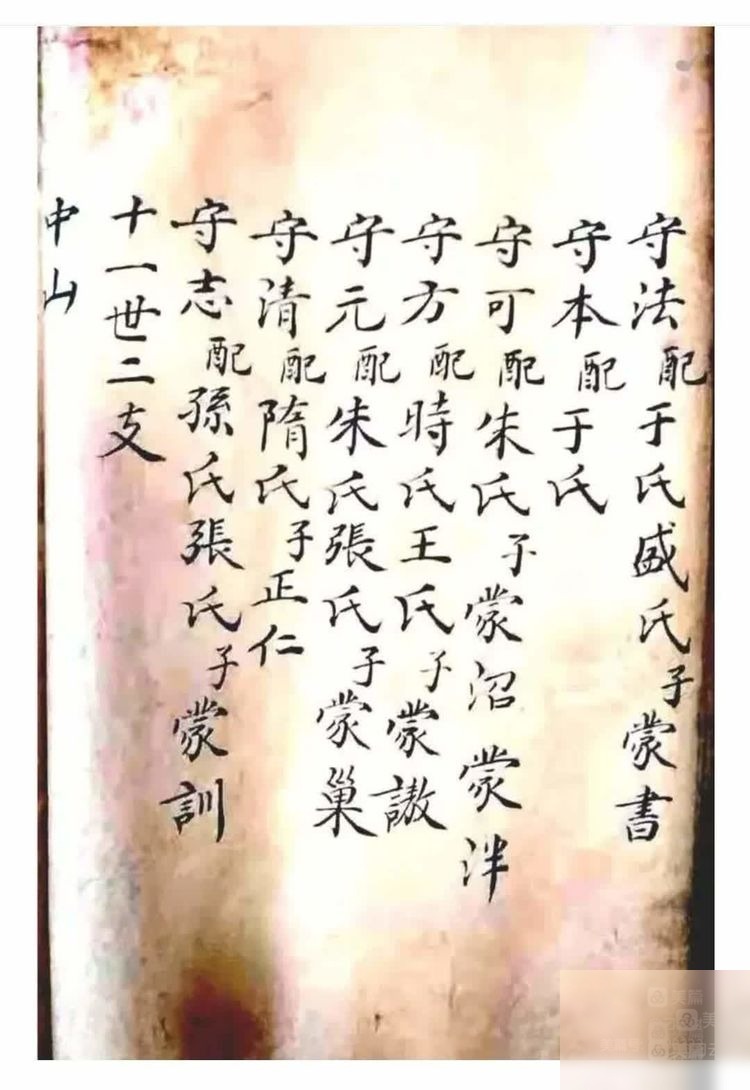 守法配于氏盛氏子蒙書
守本配于氏
守可配朱氏子蒙沼蒙泮
守方配時氏王氏子蒙謸
守元配朱氏張氏子蒙巢
守清配隋氏子正仁
守志配孫氏張氏子蒙訓
十一世二支
中山